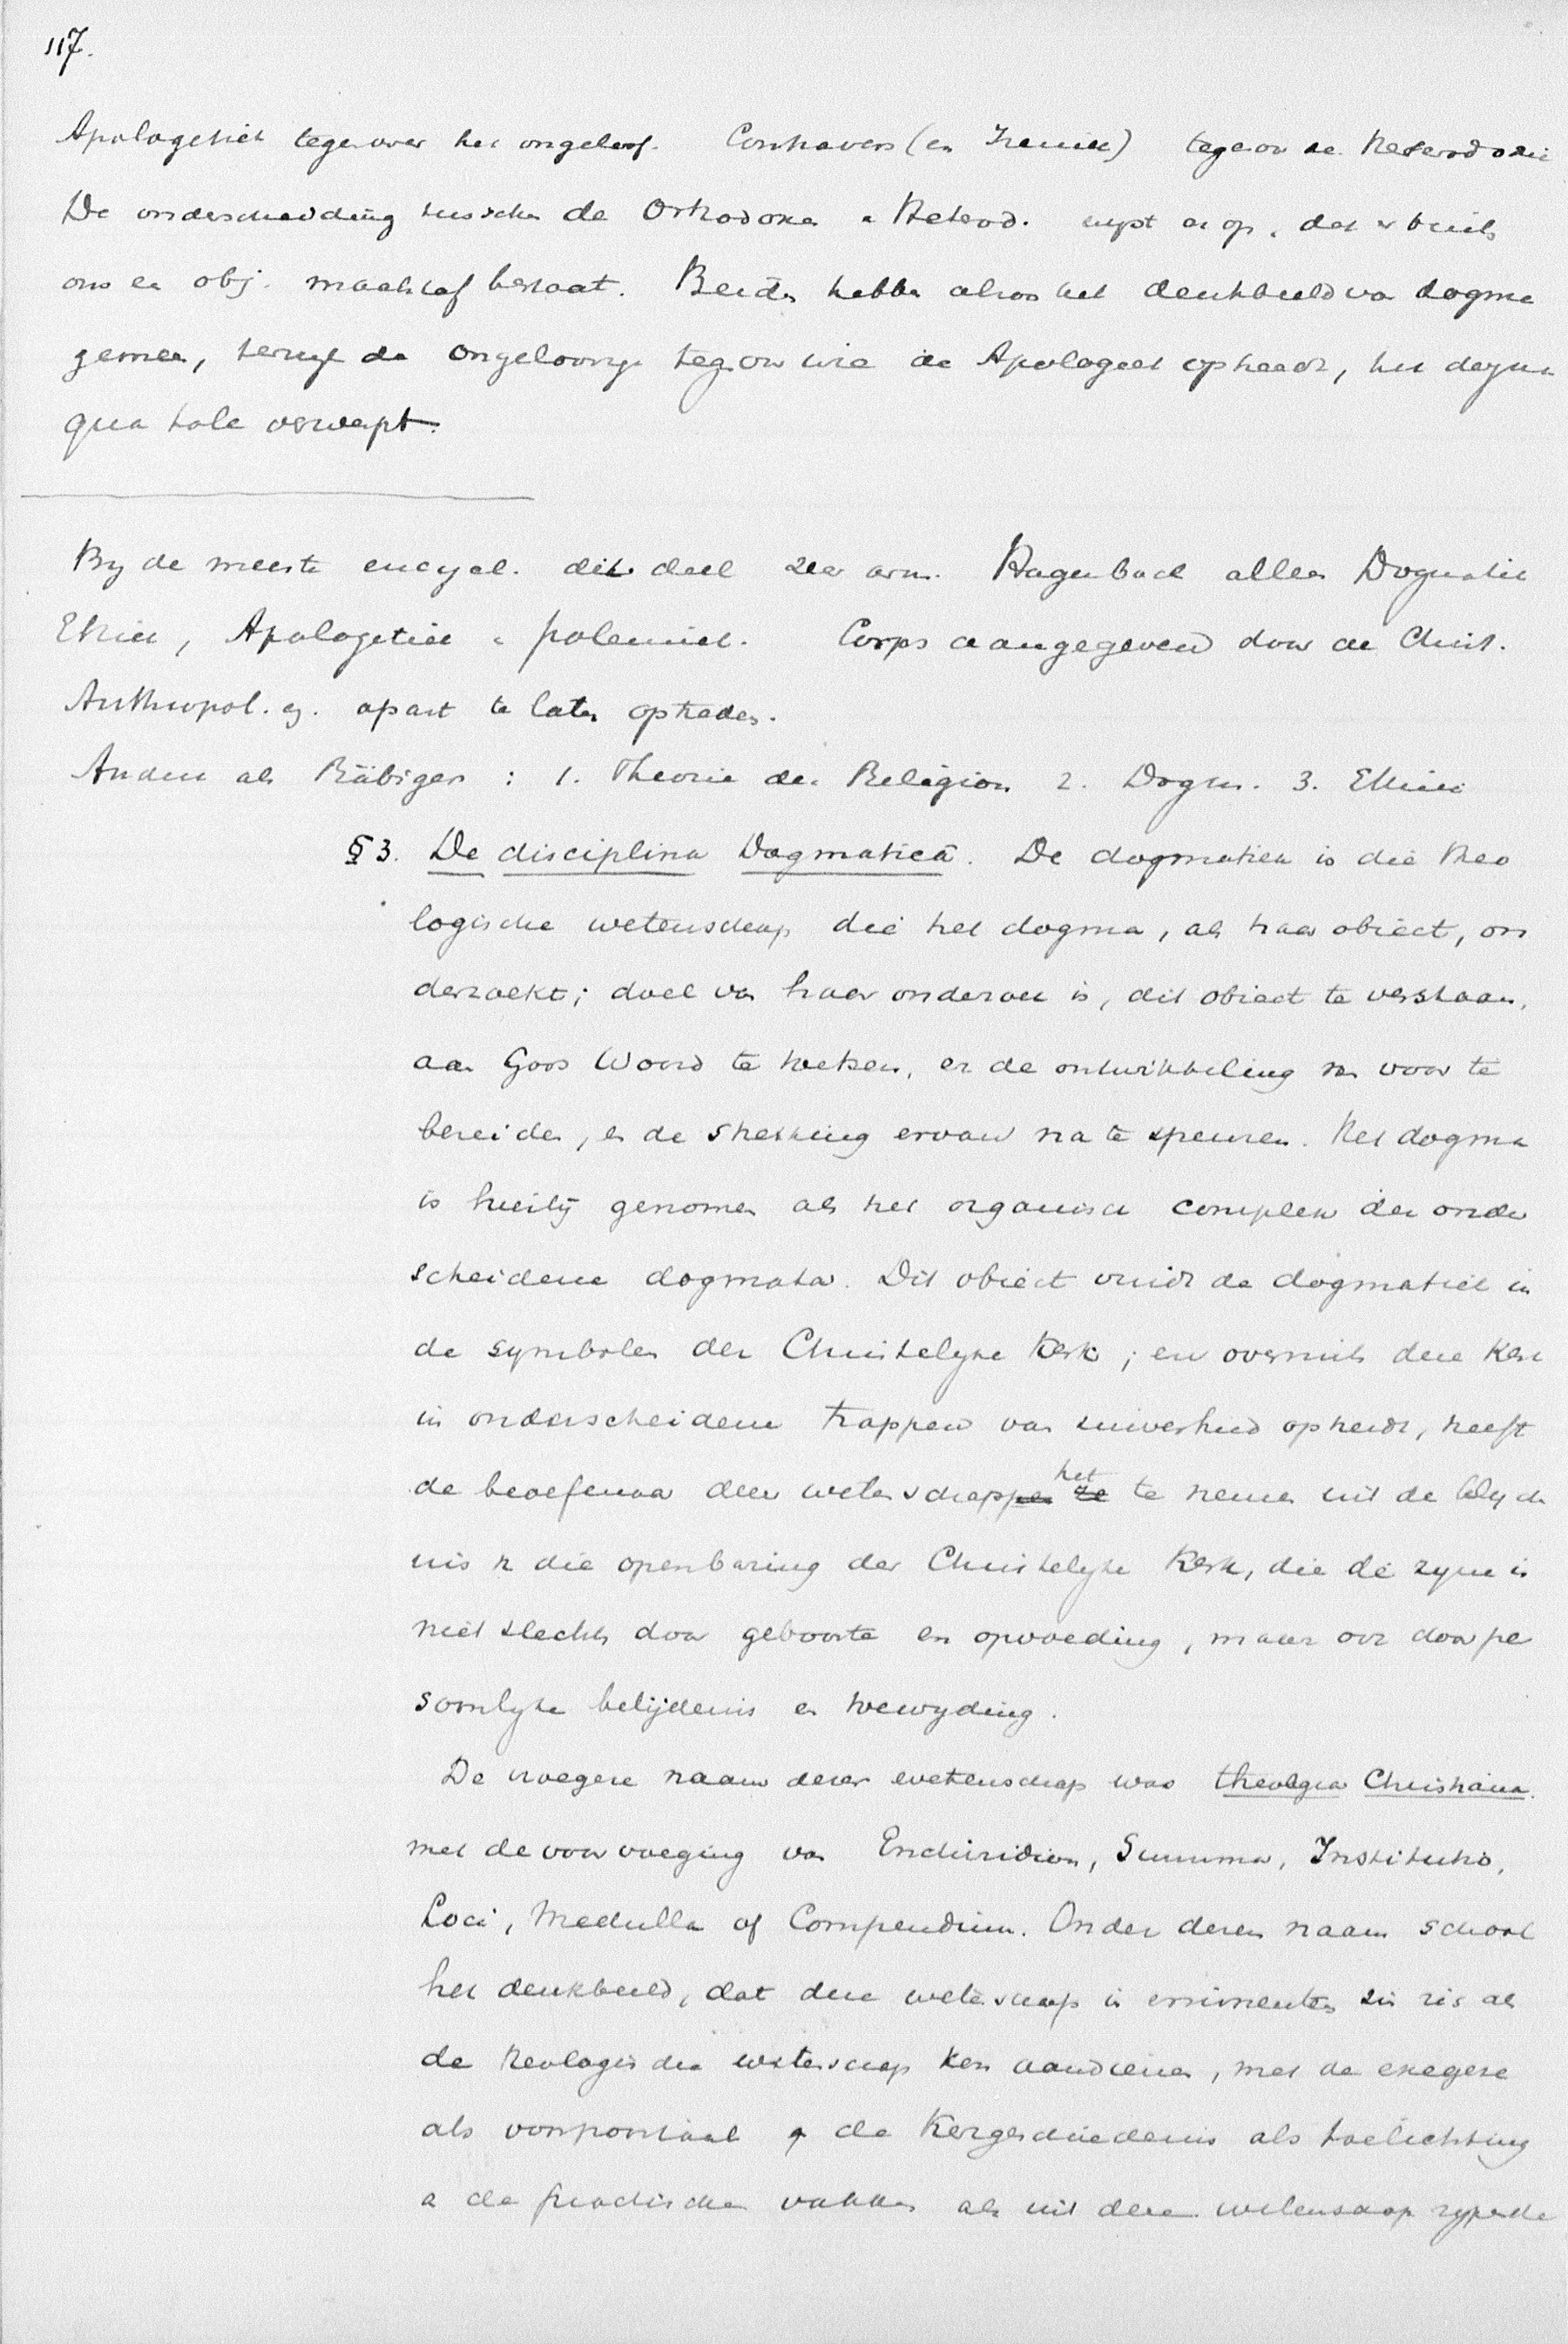 117.
Apologetiek tegenover het ongeloof. Controvers (en Ireniek) tegeov de Heterodoxie
De onderscheiding tusschen de Orthodoxen & Heterod. rust er op, dat er buiten
ons en obj. maatstaf bestaat. Beiden hebben alzoo het denkbeeld van dogma
gemeen, terwijl de Ongeloovige tegenov wie de Apologeet optreedt, het dogma
qua tale verwerpt.
By de meeste encycl. dit deel zeer arm. Hagenbach alleen Dogmatiek
Ethiek, Apologetiek & polemiek. Corps aangegeven door de Christ.
Anthropol. apart te laten optreden.
Andere als Räbiger : 1. Theorie der Religion 2. Dogm. 3. Ethiek
§ 3. De disciplina Dogmatica. De dogmatiek is die theo
logische wetenschap die het dogma, als haar obiect, on
derzoekt; doel van haar onderzoek is, dit obiect te verstaan,
aan Gods Woord te toetsen, en de ontwikkeling er van voor te
bereiden, en de strekking ervan na te speuren. Het dogma
is hierbij genomen als het organisch complex der onder
scheidene dogmata. Dit obiect vindt de dogmatiek in
de symbolen der Christelyke Kerk; en overmits deze Kerk
in onderscheidene trappen van zuiverheid optreedt, heeft
de beoefenaar dezer wetenschappen ze het te nemen uit de belyde
nis v die openbaring der Christelyke Kerk, die de zyne is
niet slechts door geboorte en opvoeding, maar ook door per
soonlyke belijdenis en toewyding.
De vroegere naam dezer wetenschap was theologia Christiana.
met de voorvoeging van Enchiridion, Summa, Institutio,
Loci, Medulla of Compendium. Onder dezen naam school
het denkbeeld, dat deze wetenschap in eminenten zin zich als
de theologische wetenschap kon aandienen, met de exegese
als voorportaal & de Kerkgeschiedenis als toelichting
& de practische vakken als uit deze wetenschap